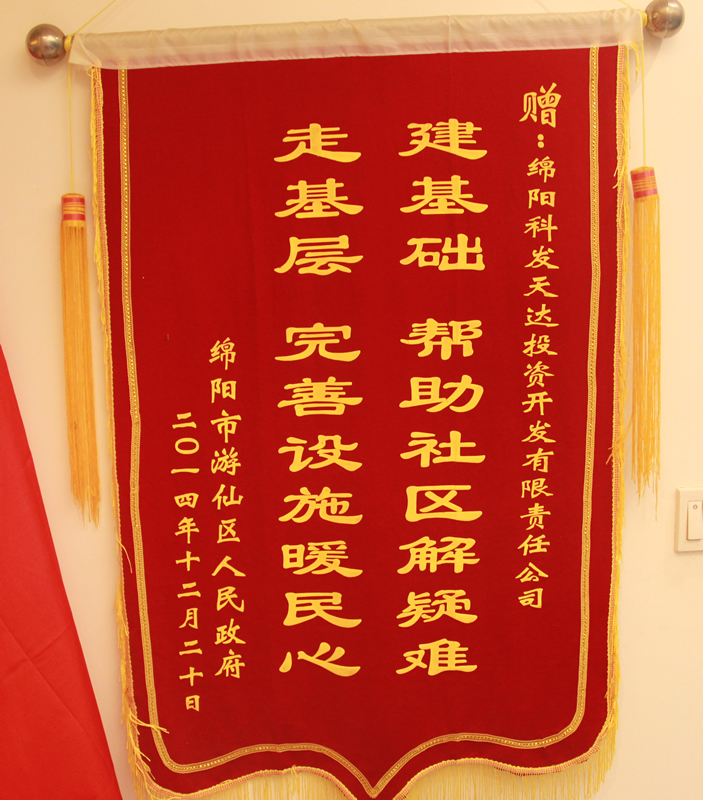 赠：绵阳科发天达投资开发有限责任公司
建基础 帮助社区解疑难
走基层 完善设施暖民心
绵阳市游仙区人民政府
二〇一四年十二月二十日